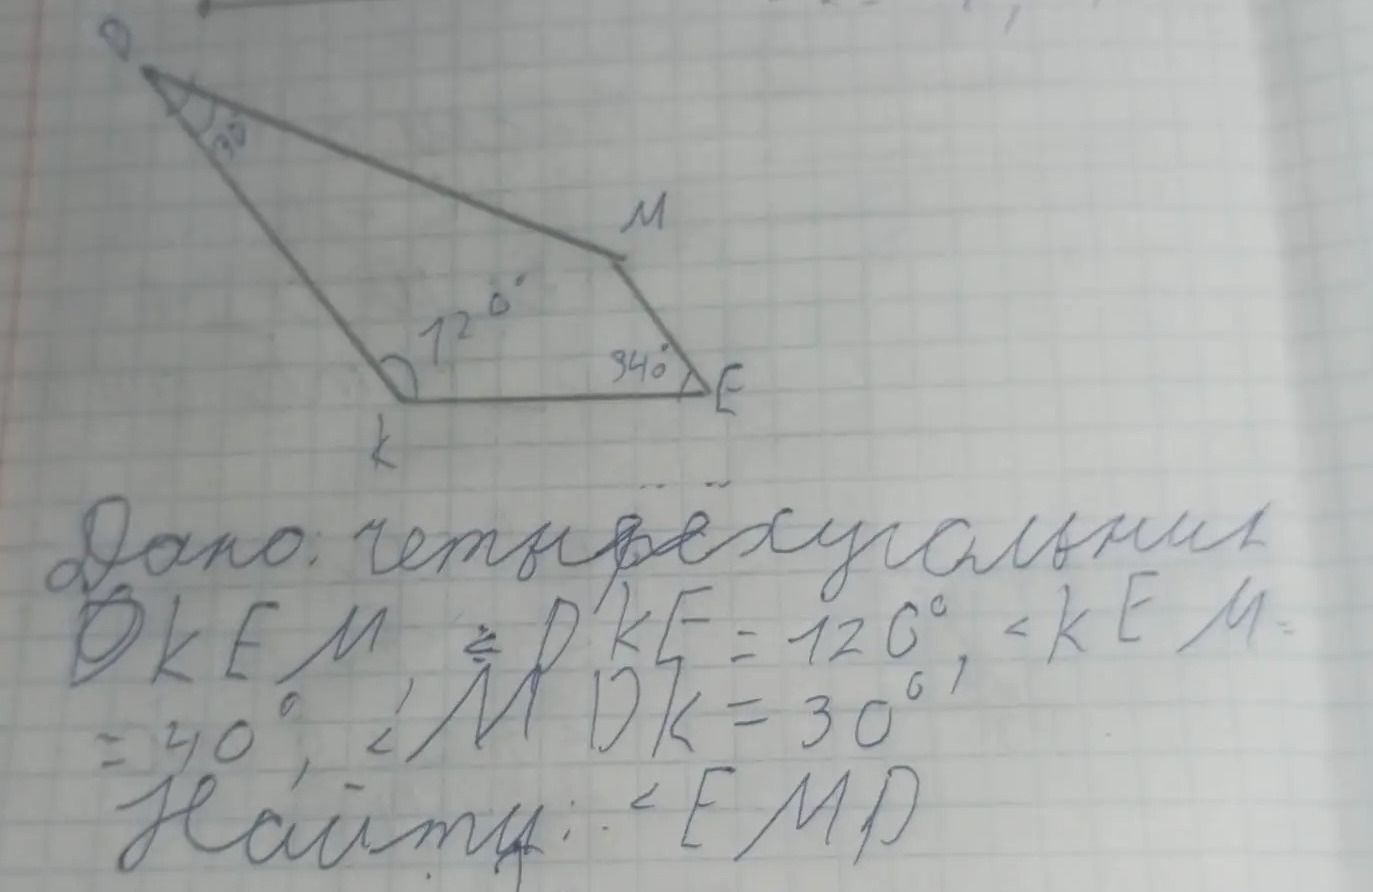 D
30
M
120°
340°
E
K
Дано: четырёхугольник
DKEM, ∠DKE = 120°, <KEM =
= 40°, <MDK = 30°
Найти: <EMD